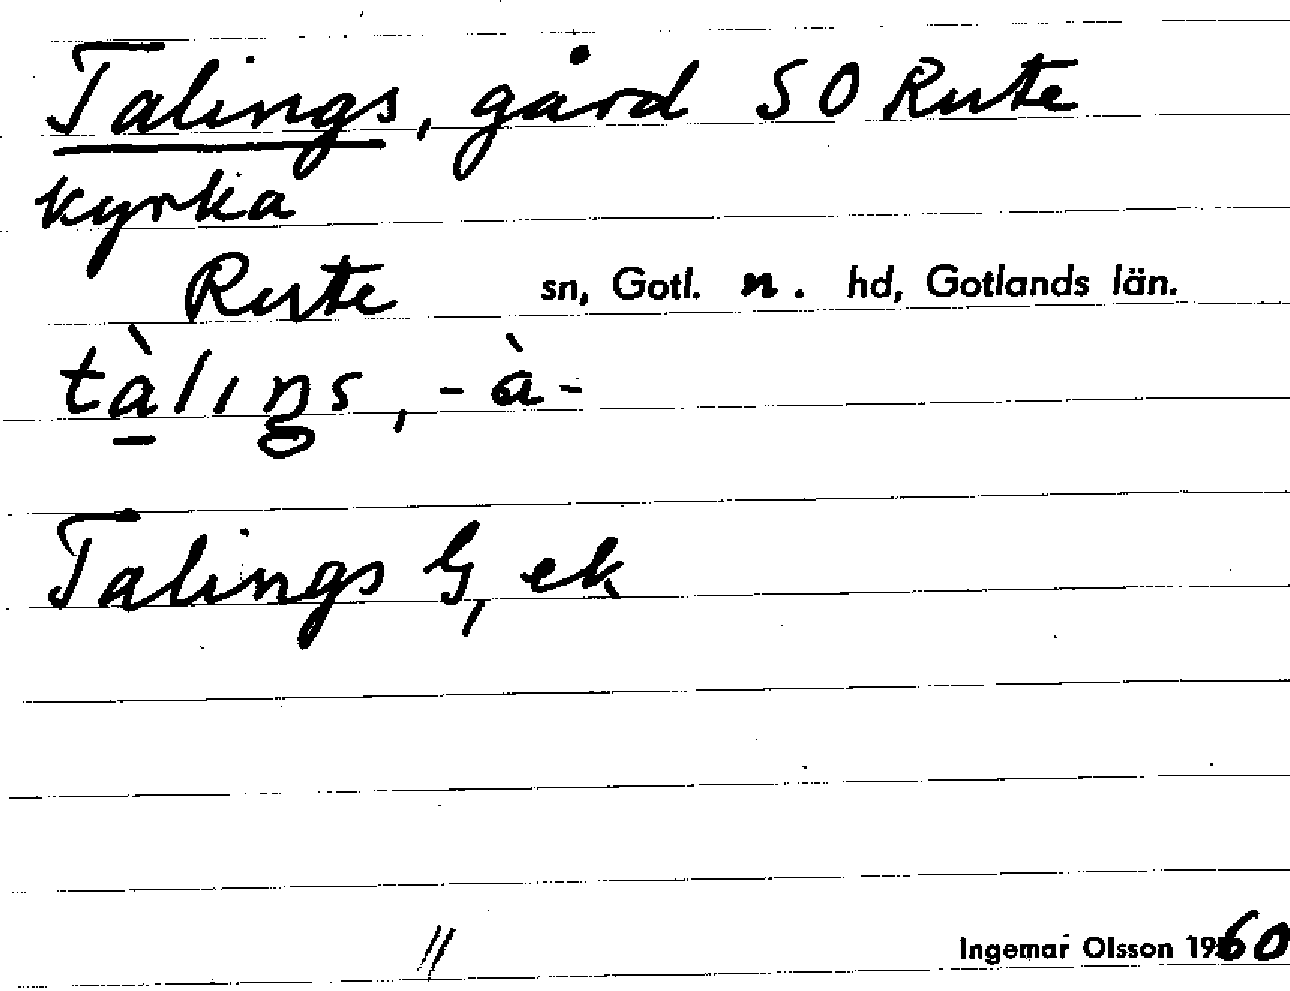 Talings, gård SO Rute
kyrka
Rute sn, Gotl. n. hd, Gotlands län.
tà̱lıŋs, -à-
Talings G, ek
//
Ingemar Olsson 1960